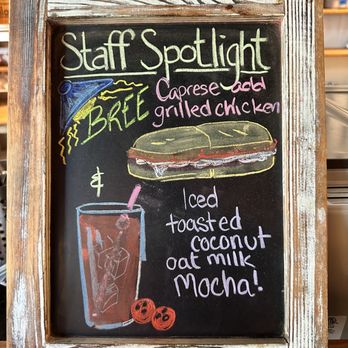 Staff Spotlight
BREE
Caprese add
grilled chicken
&
Iced
toasted
coconut
oat milk
Mocha!